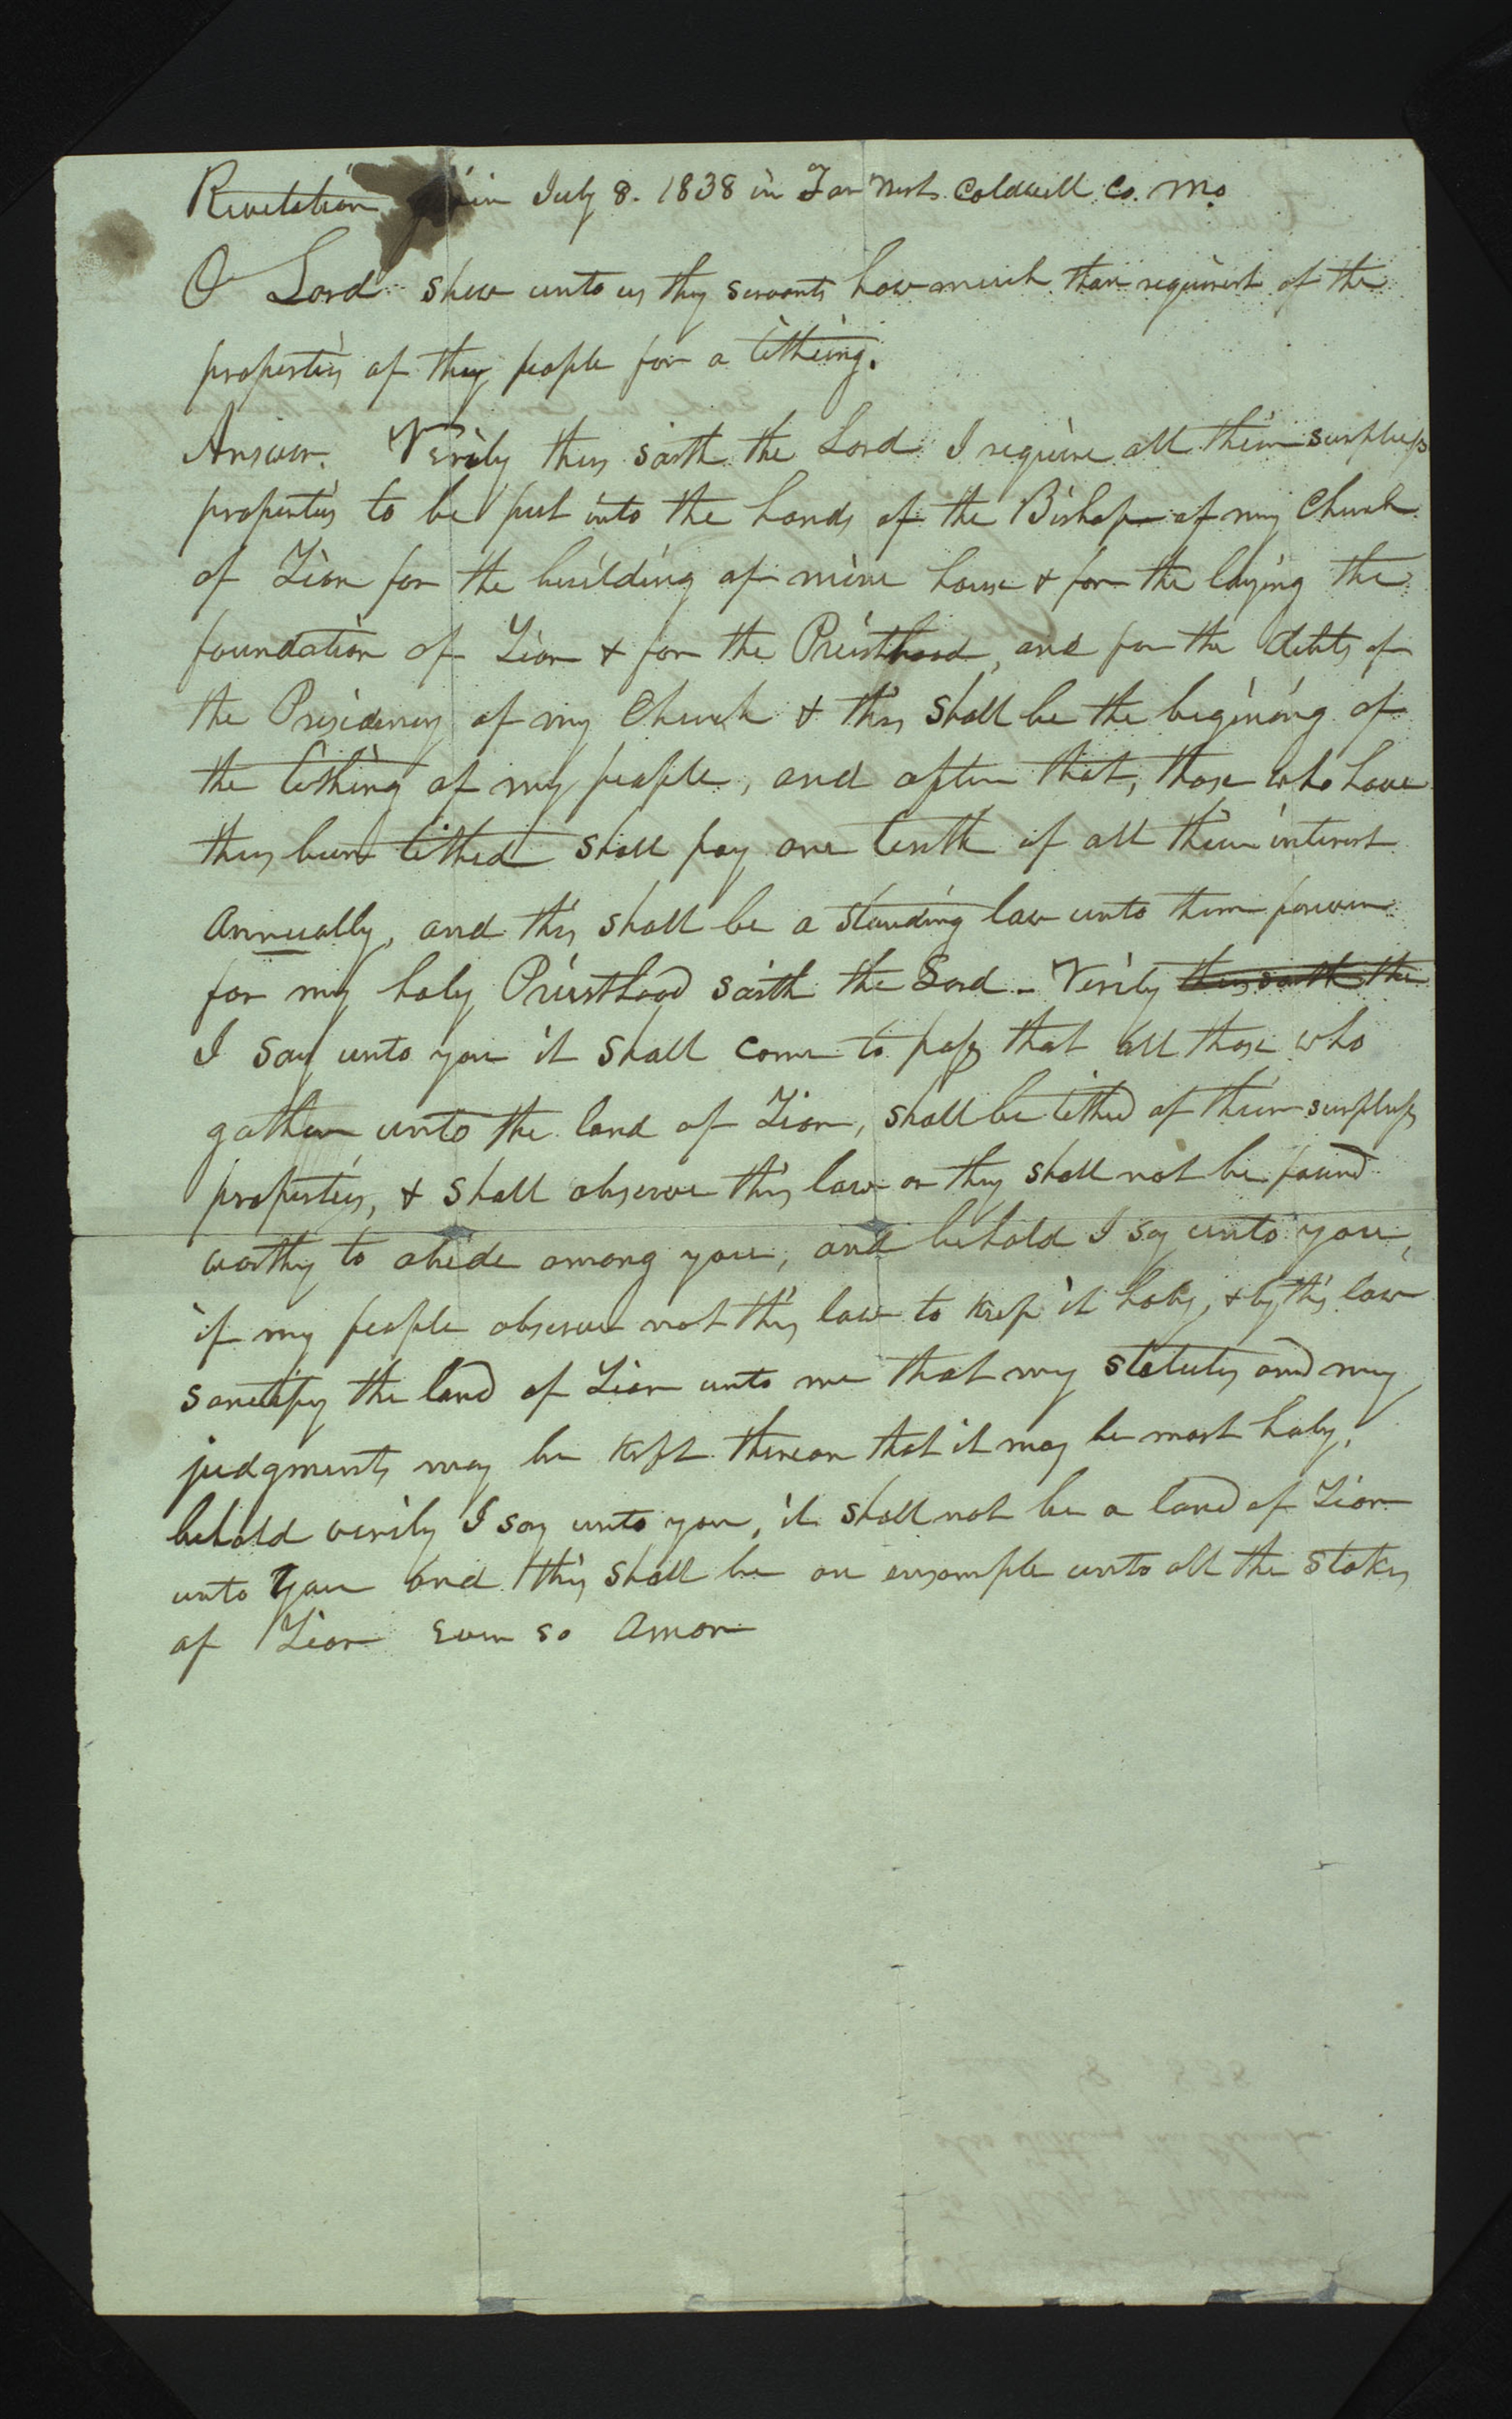 Revelation given July 8. 1838 in Far West. Coldwell Co. Mo
O Lord shew unto us thy servants how much thou requirest of the
properties of thy people for a titheing.
Answer. Verily thus saith the Lord I require all their surpluss
properties to be put into the hands of the Bishop of my Church
of Zion for the building of mine house & for the laying the
foundation of Zion & for the Priesthood, and for the debts of
the Presidency of my Church & this shall be the begining of
the tithing of my people, and after that, those who have
thus been tithed shall pay one tenth of all their interest
Annually, and this shall be a standing law unto them forever
for my holy Priesthood saith the Lord - Verily thus saith the
I say unto you it shall come to pass that all those who
gather unto the land of Zion, shall be tithed of their surpluss
properties, & shall observe this law or they shall not be found
worthy to abide among you, and behold I say unto you,
if my people observe not this law to keep it holy, & by this law
sanctify the land of Zion unto me that my statutes and my
judgments may be kept thereon that it may be most holy,
behold verily I say unto you, it shall not be a land of Zion
unto you and this shall be an ensample unto all the stakes
of Zion even so Amen